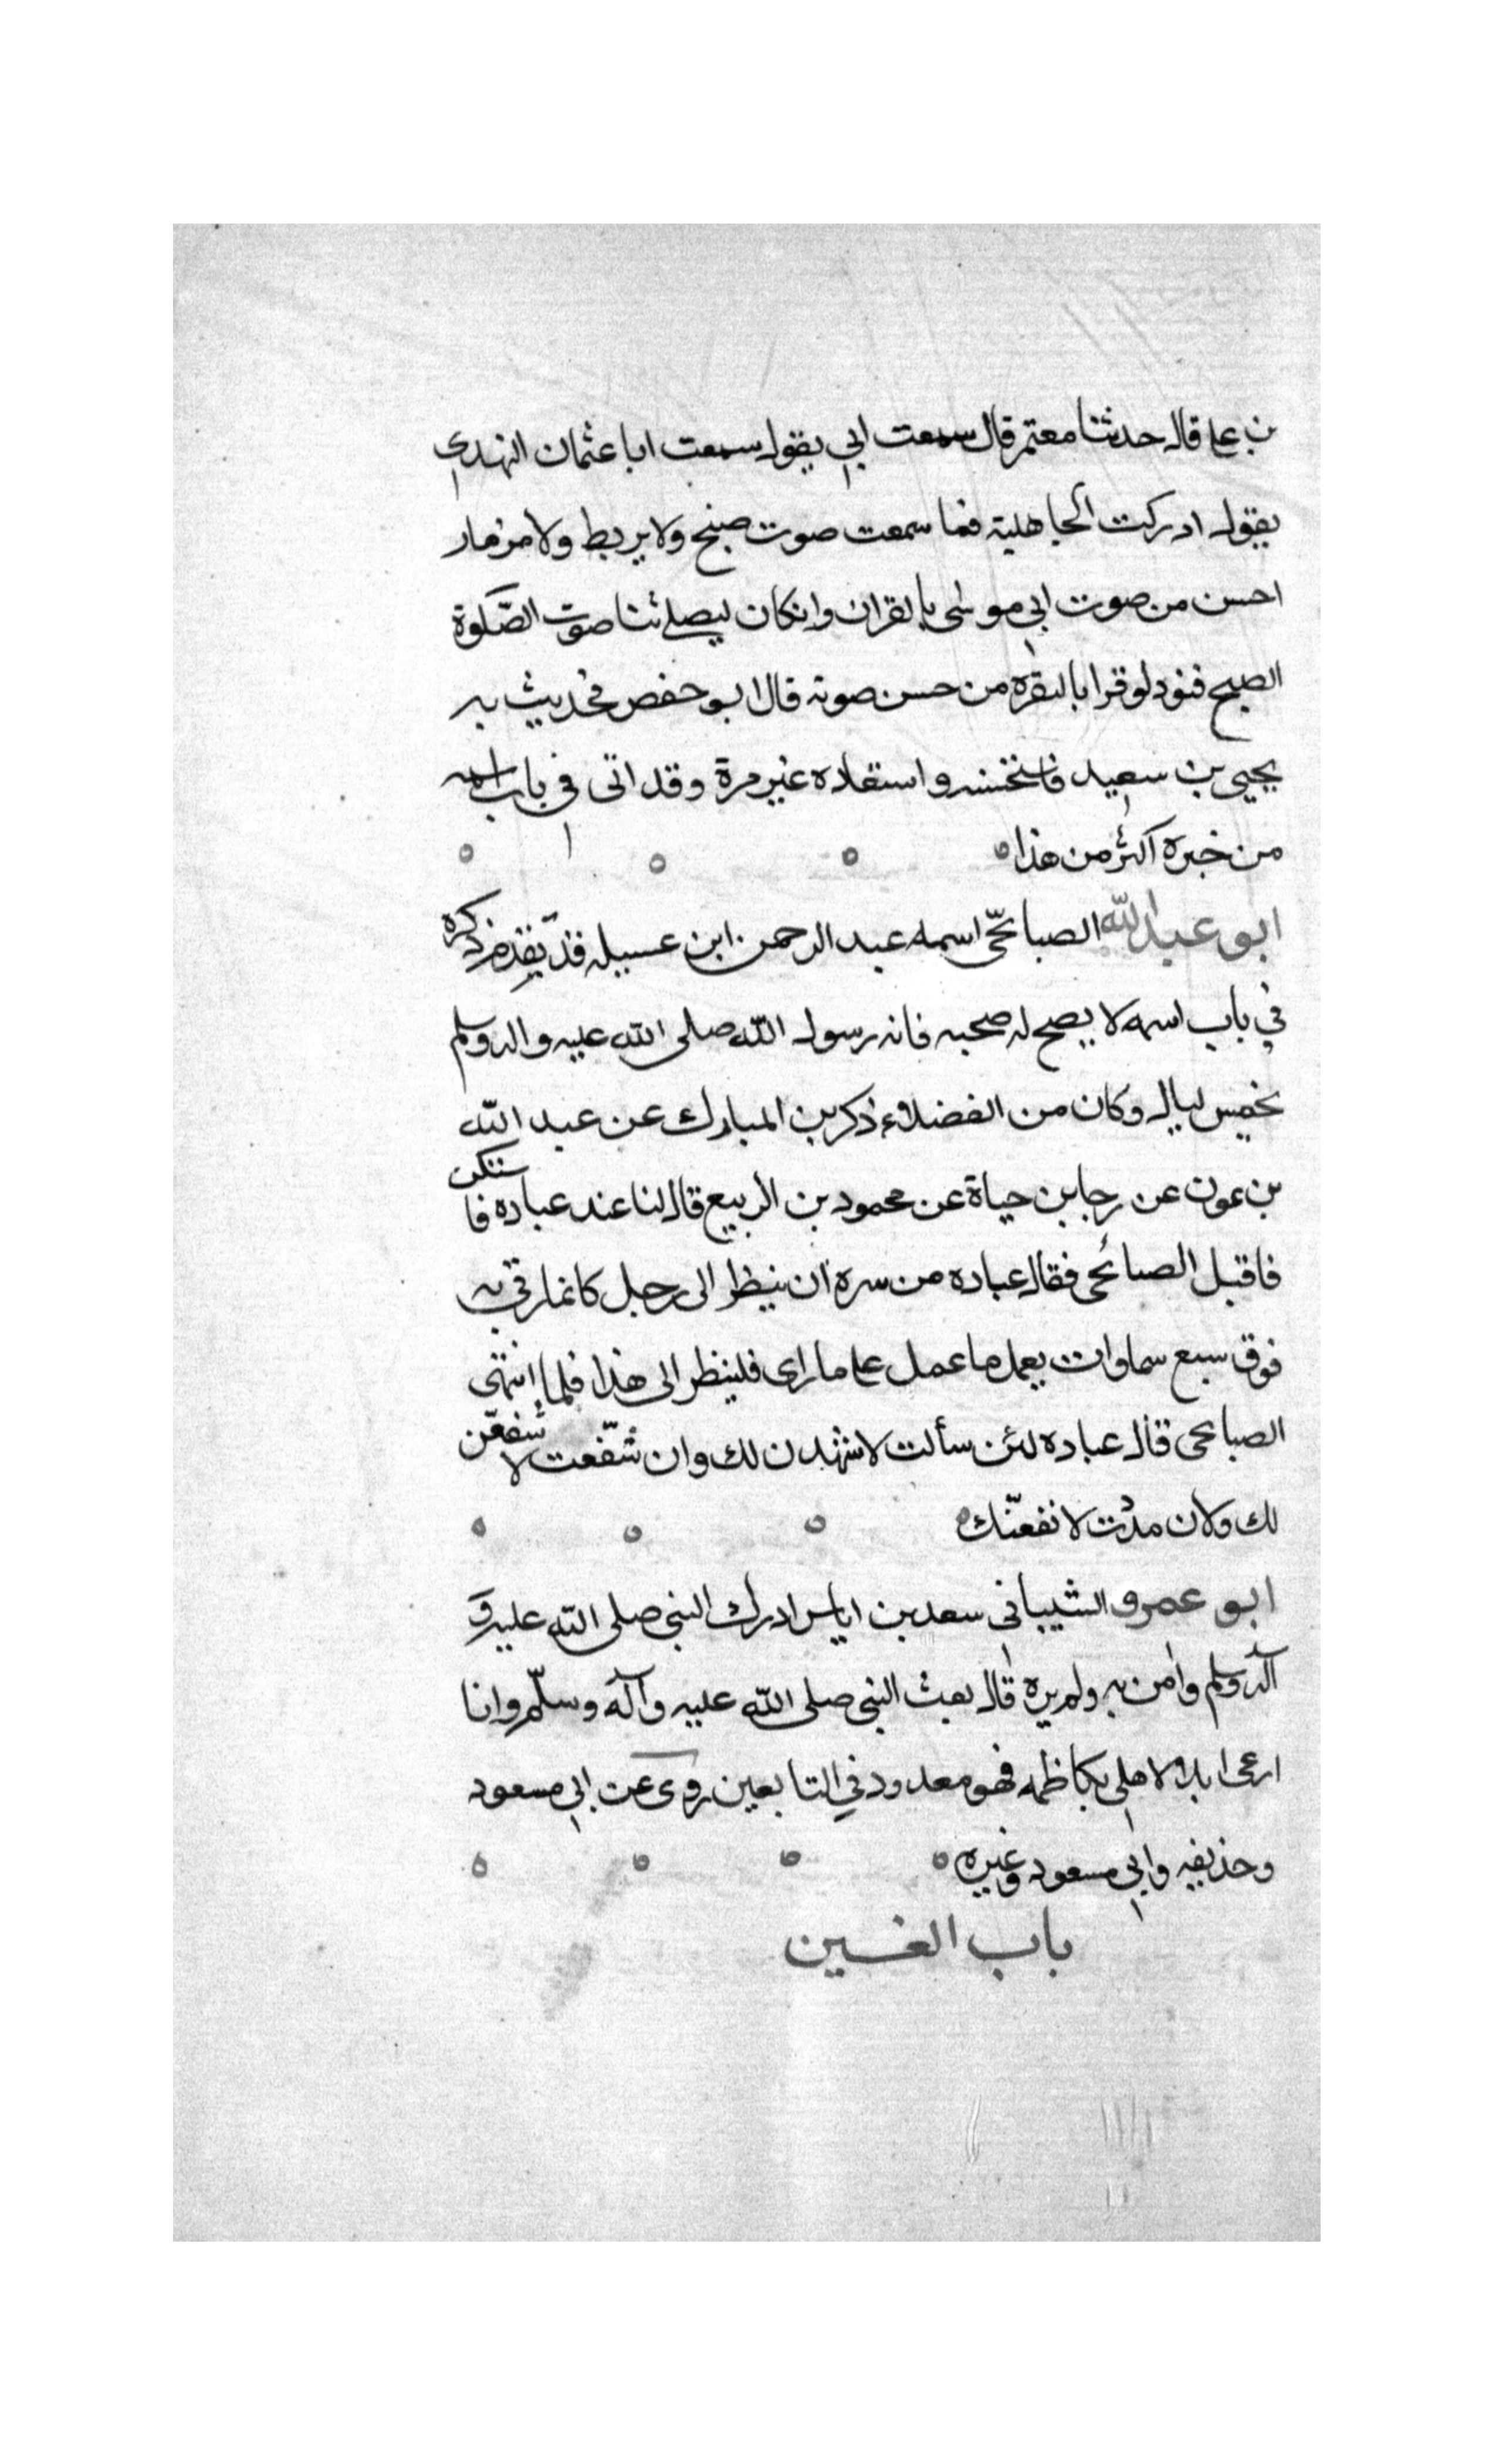 بن على قال حدثنا معتمر قال سمعت ابي يقول سمعت ابا عثمان النهدي
يقول ادركت الجاهلية فما سمعت صوت صنج ولا بربط ولا مزمار
احسن من صوت ابي موسى بالقران وان كان ليصلے بنا صوت الصّلوة
الصبح فنود لو قرا بالبقره من حسن صوته قال ابو حفص فحديث به
يحيى بن سعيد فاستحسنه و استعاده غير مرة وقد اتى في باب اسمه
من خبره اكثر من هذا
ابو عبد الله الصنابحّى اسمه عبد الرحمن ابن عسيله قد تقدم ذكره
في باب اسمه لا يصح له صحبه فانه رسول الله صلى الله عليه واله وسلم
بخمس ليال وكان من الفضلاء ذكر بن المبارك عن عبد الله
بن عون عن رجا بن حياة عن محمود بن الربيع قال لنا عند عباده فا ستنكى
فاقبل الصنابحى فقال عباده من سره ان ينظر الى رجل كانما رقي به
فوق سبع سماوات يعمل ما عمل على ما راى فلينظر الى هذا فلما انتهى
الصنابحى قال عباده لئن سألت لاشهدن لك وان شفّعت لا شفعّن
لك ولان قدرت لا نفعنّك
ابو عمرو الشيبانى سعد بن اياس ادرك النبي صلى الله عليه و
اله وسلم وامن به ولم يره قال بعث النبي صلى الله عليه وآله وسلّم وانا
ارعى ابلا لاهلى بكاظمه فهو معدود في التابعين روى عن ابي مسعود
وحذيفه وابي مسعود وغيره
باب الغين